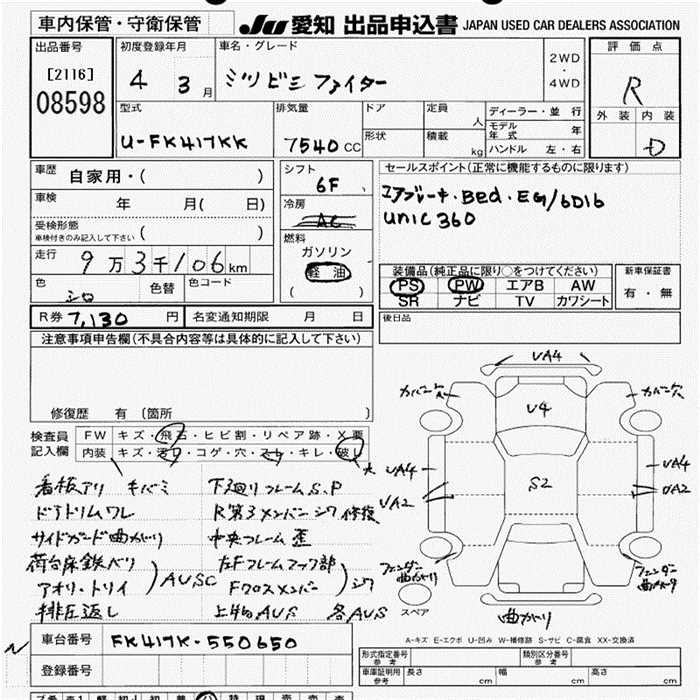 車内保管・守衛保管
JU 愛知 出品申込書 JAPAN USED CAR DEALERS ASSOCIATION
出品番号 初度登録年月 車名・グレード 評価点
[2116] 4 3月 ミツビシ ファイター 2WD・4WD R
08598
型式 排気量 ドア 定員 人 ディーラー・並行 外装 内装
U-FK417KK 7540 CC 形状 積載 kg モデル年式 年 D
ハンドル 左・右
車歴 自家用・( ) シフト 6F セールスポイント(正常に機能するものに限ります)
車検 年 月( 日) 冷房 AC エアブレーキ・Bed・EG/6D16
受検形態 車検付きのみ記入して下さい ( ) UNIC 360
走行 9万3千106km 燃料 ガソリン 軽油 ( )
装備品(純正品に限り○をつけてください) 新車保証書
色 シロ 色替 色コード PS PW エアB AW 有・無
SR ナビ TV カワシート
R券 7,130 円 名変通知期限 月 日 後日品
注意事項申告欄(不具合内容等は具体的に記入して下さい)
修復歴 有 (箇所 )
検査員記入欄 FW キズ・飛石・ヒビ割・リペア跡・X要
内装 キズ・汚れ・コゲ・穴・スレ・キレ・破れ
VA4
カバー穴 カバー穴
V4
VA4 S2 VA4
VA2 VA2
フェンダー曲がり フェンダー曲がり
スペア 曲がり
看板アリ キバミ 下廻りフレームS.P
ドアトリムワレ R第3メンバーシワ修復
サイドガード曲がり 中央フレーム歪
荷台床鉄ベリ 左Fフレームフック部
アオリ・トリイ AUSC Fクロスメンバー シワ
排圧返し 上物AUS 各AUS
A-キズ E-エクボ U-凹み W-補修跡 S-サビ C-腐食 XX-交換済
車台番号 FK417K-550650
登録番号
型式指定番号 参考 類別区分番号 参考
車庫証明用 参考 長さ cm 幅 cm 高さ cm